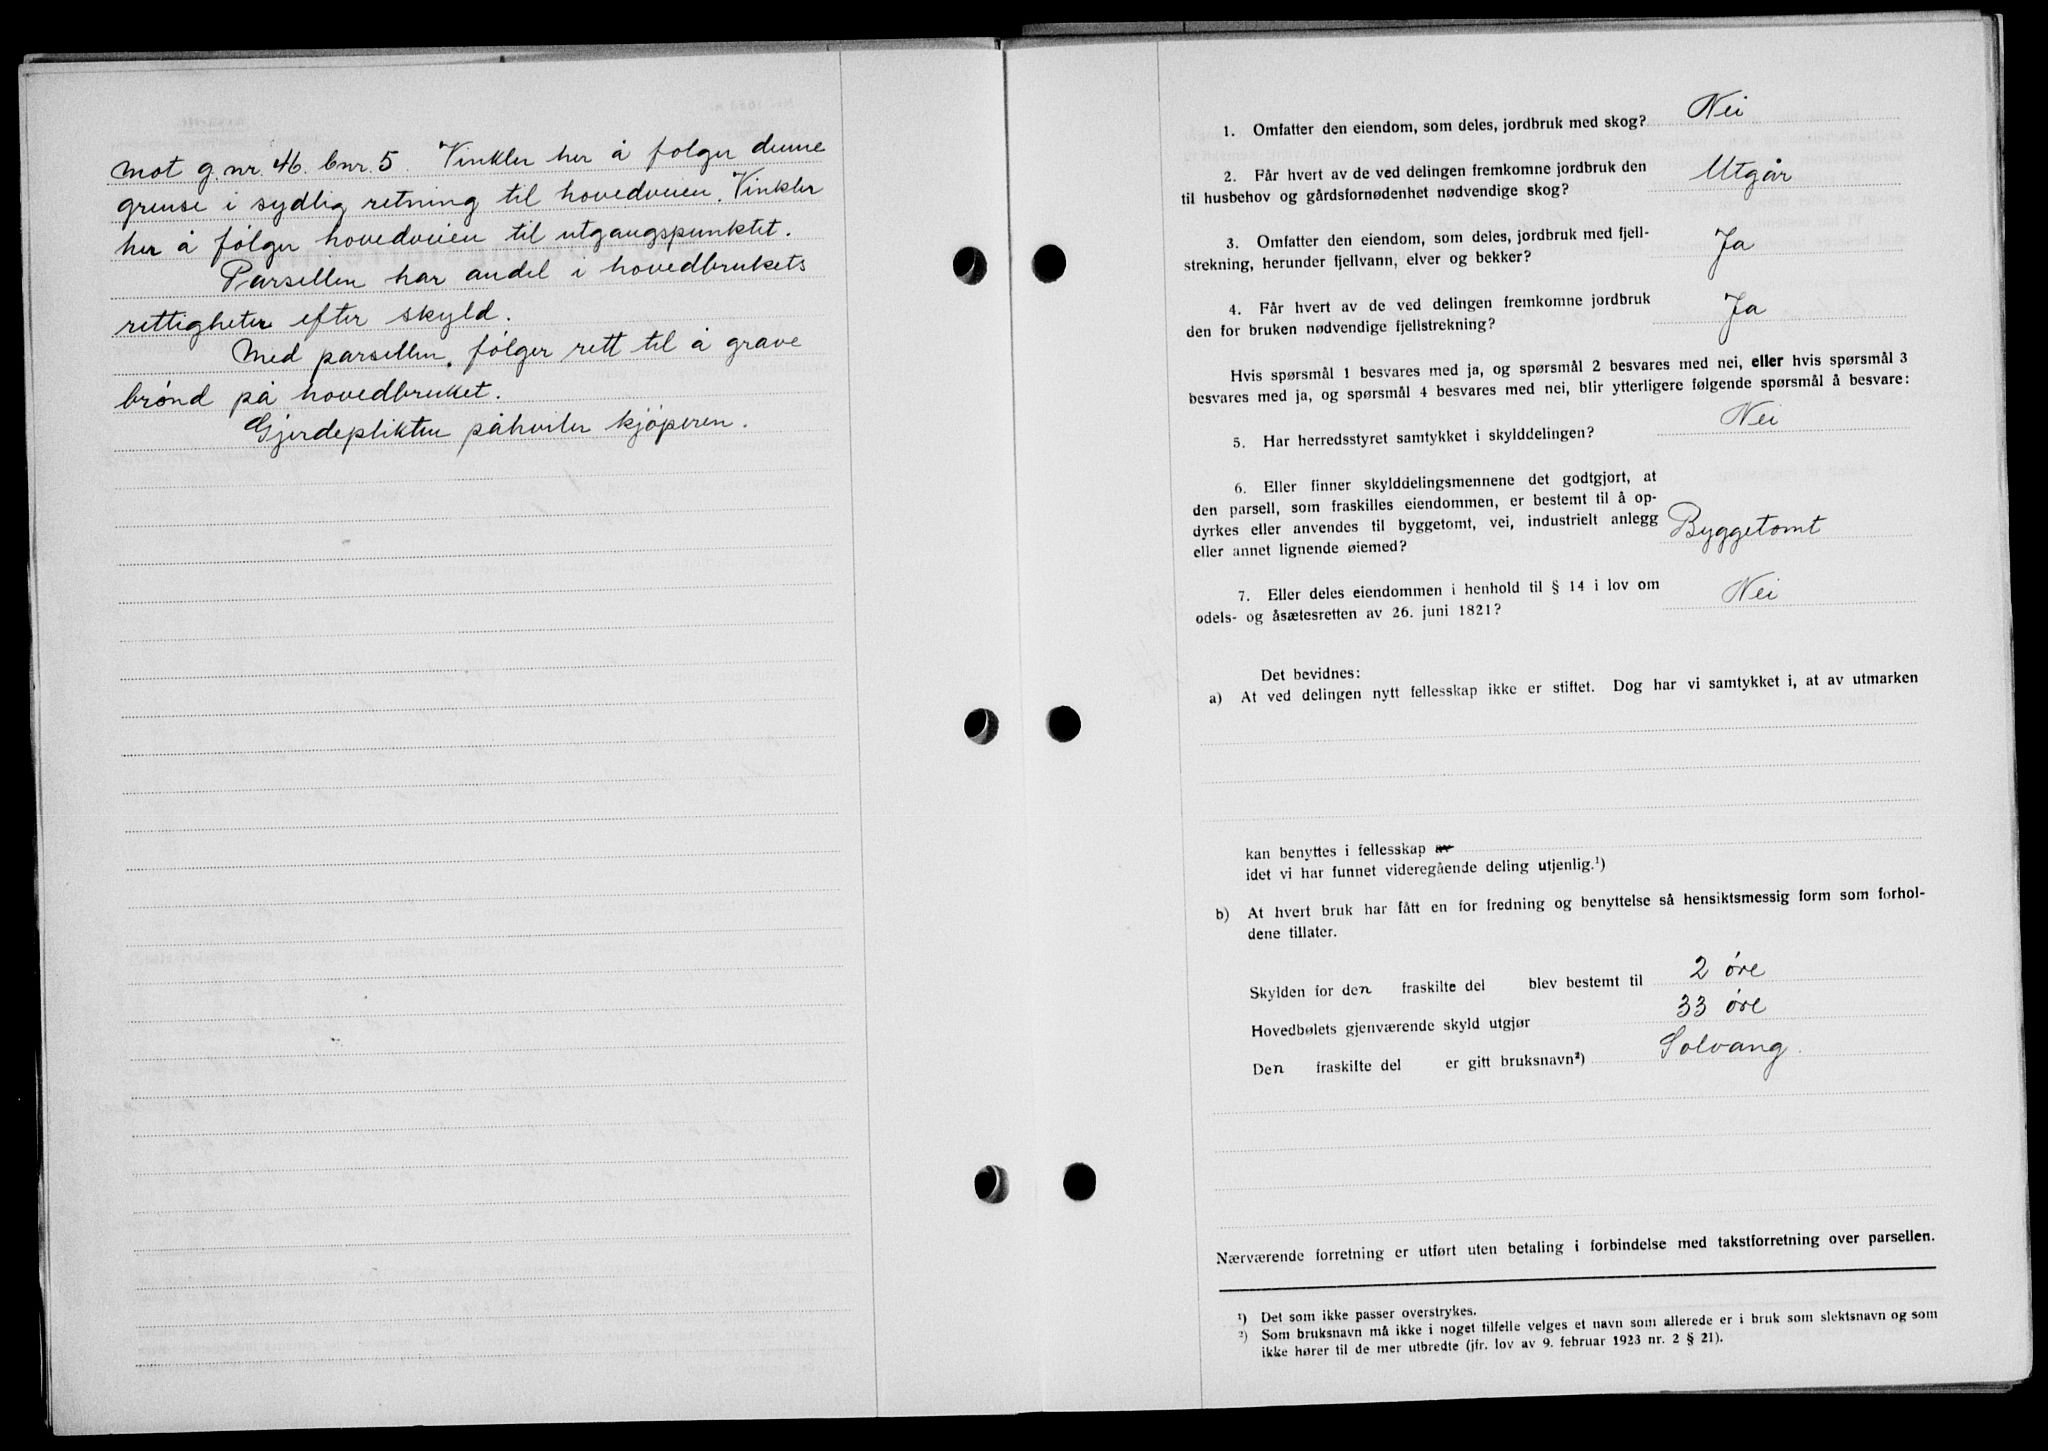 mot g.nr. 46. bnr. 5. Vinkler her å følger denne
grense i sydlig retning til hovedveien. Vinkler
her å følger hovedveien til utgangspunktet.
Parsellen har andel i hovedbrukets
rettigheter efter skyld.
Med parsellen følger rett til å grave
brønd på hovedbruket.
Gjerdeplikten påhviler kjøperen.
1. Omfatter den eiendom, som deles, jordbruk med skog? Nei
2. Får hvert av de ved delingen fremkomne jordbruk den
til husbehov og gårdsfornødenhet nødvendige skog? Utgår
3. Omfatter den eiendom, som deles, jordbruk med fjell-
strekning, herunder fjellvann, elver og bekker? Ja
4. Får hvert av de ved delingen fremkomne jordbruk
den for bruken nødvendige fjellstrekning? Ja
Hvis spørsmål 1 besvares med ja, og spørsmål 2 besvares med nei, eller hvis spørsmål 3
besvares med ja, og spørsmål 4 besvares med nei, blir ytterligere følgende spørsmål å besvare:
5. Har herredsstyret samtykket i skylddelingen? Nei
6. Eller finner skylddelingsmennene det godtgjort, at
den parsell, som fraskilles eiendommen, er bestemt til å op-
dyrkes eller anvendes til byggetomt, vei, industrielt anlegg
eller annet lignende øiemed? Byggetomt
7. Eller deles eiendommen i henhold til § 14 i lov om
odels- og åsætesretten av 26. juni 1821? Nei
Det bevidnes:
a) At ved delingen nytt fellesskap ikke er stiftet. Dog har vi samtykket i, at av utmarken
kan benyttes i fellesskap av
idet vi har funnet videregående deling utjenlig.¹)
b) At hvert bruk har fått en for fredning og benyttelse så hensiktsmessig form som forhol-
dene tillater.
Skylden for den fraskilte del blev bestemt til 2 øre
Hovedbølets gjenværende skyld utgjør 33 øre
Den fraskilte del er gitt bruksnavn²) Solvang.
Nærværende forretning er utført uten betaling i forbindelse med takstforretning over parsellen.
¹) Det som ikke passer overstrykes.
²) Som bruksnavn må ikke i noget tilfelle velges et navn som allerede er i bruk som slektsnavn og som
ikke hører til de mer utbredte (jfr. lov av 9. februar 1923 nr. 2 § 21).